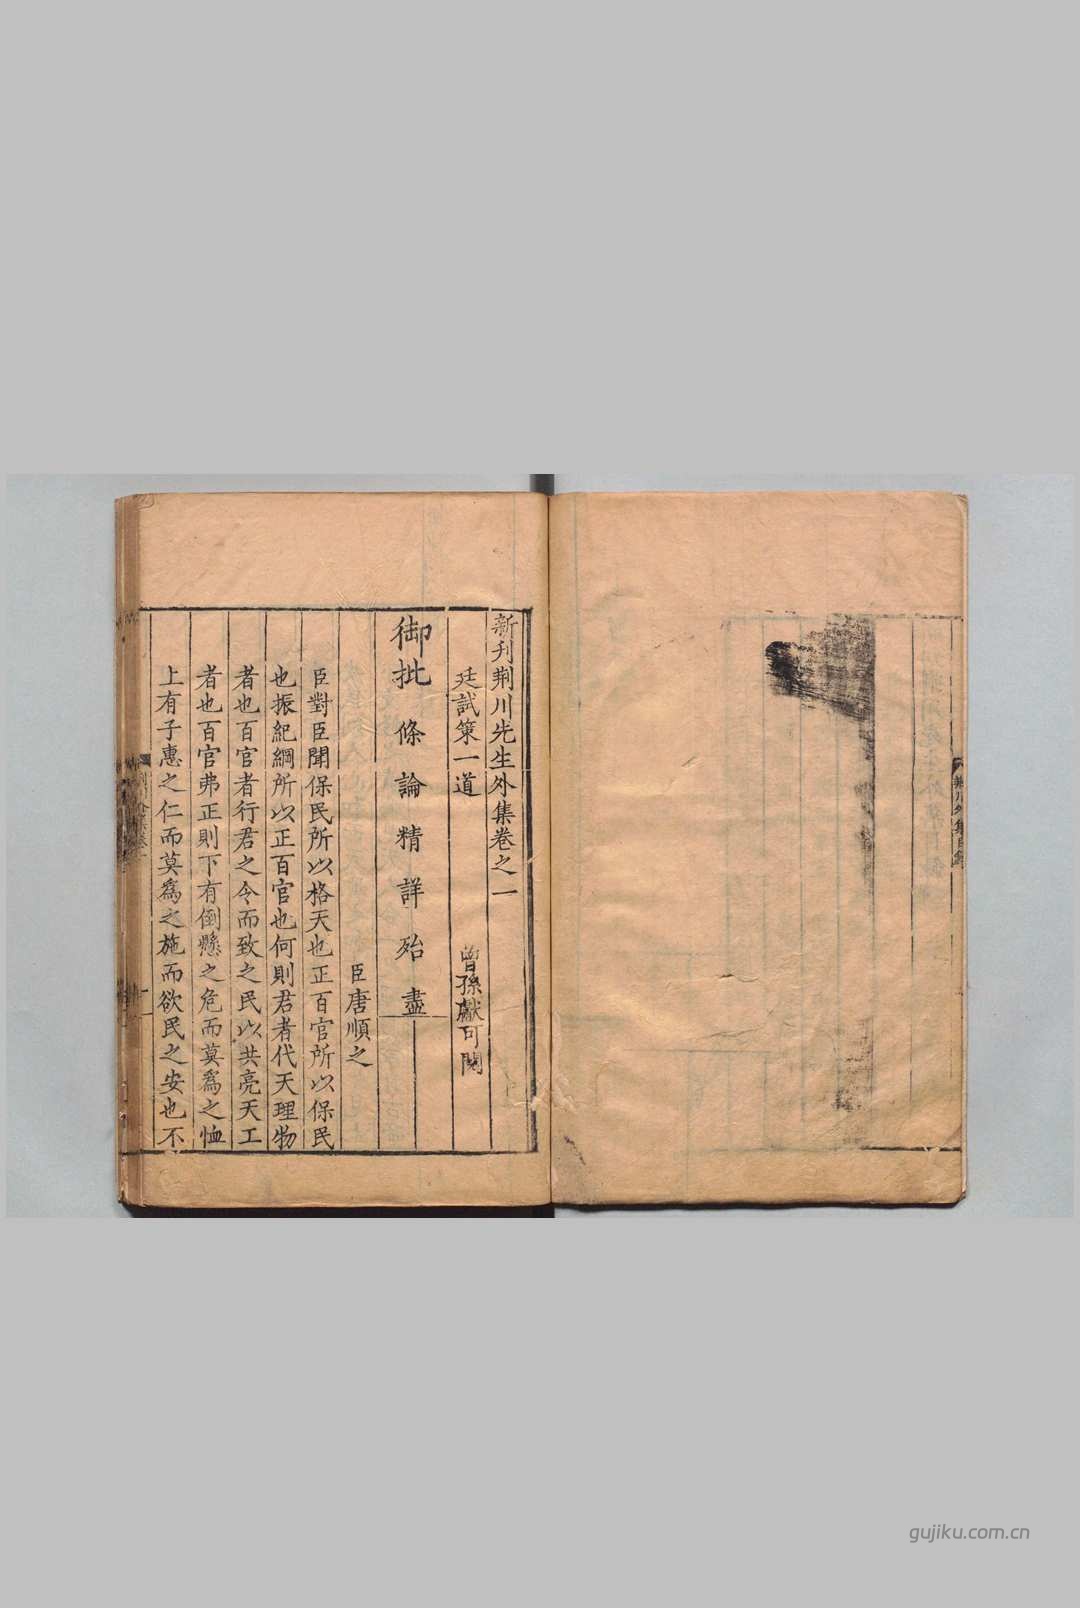 新刋荆川先生外集卷之一
廷試策一道
曾孫獻可閱
御批
條論精詳殆盡
臣唐順之
臣對臣聞保民所以格天也正百官所以保民
也振紀綱所以正百官也何則君者代天理物
者也百官者行君之令而致之民以共亮天工
者也百官弗正則下有倒懸之危而莫爲之恤
上有子惠之仁而莫爲之施而欲民之安也不
gujiku.com.cn